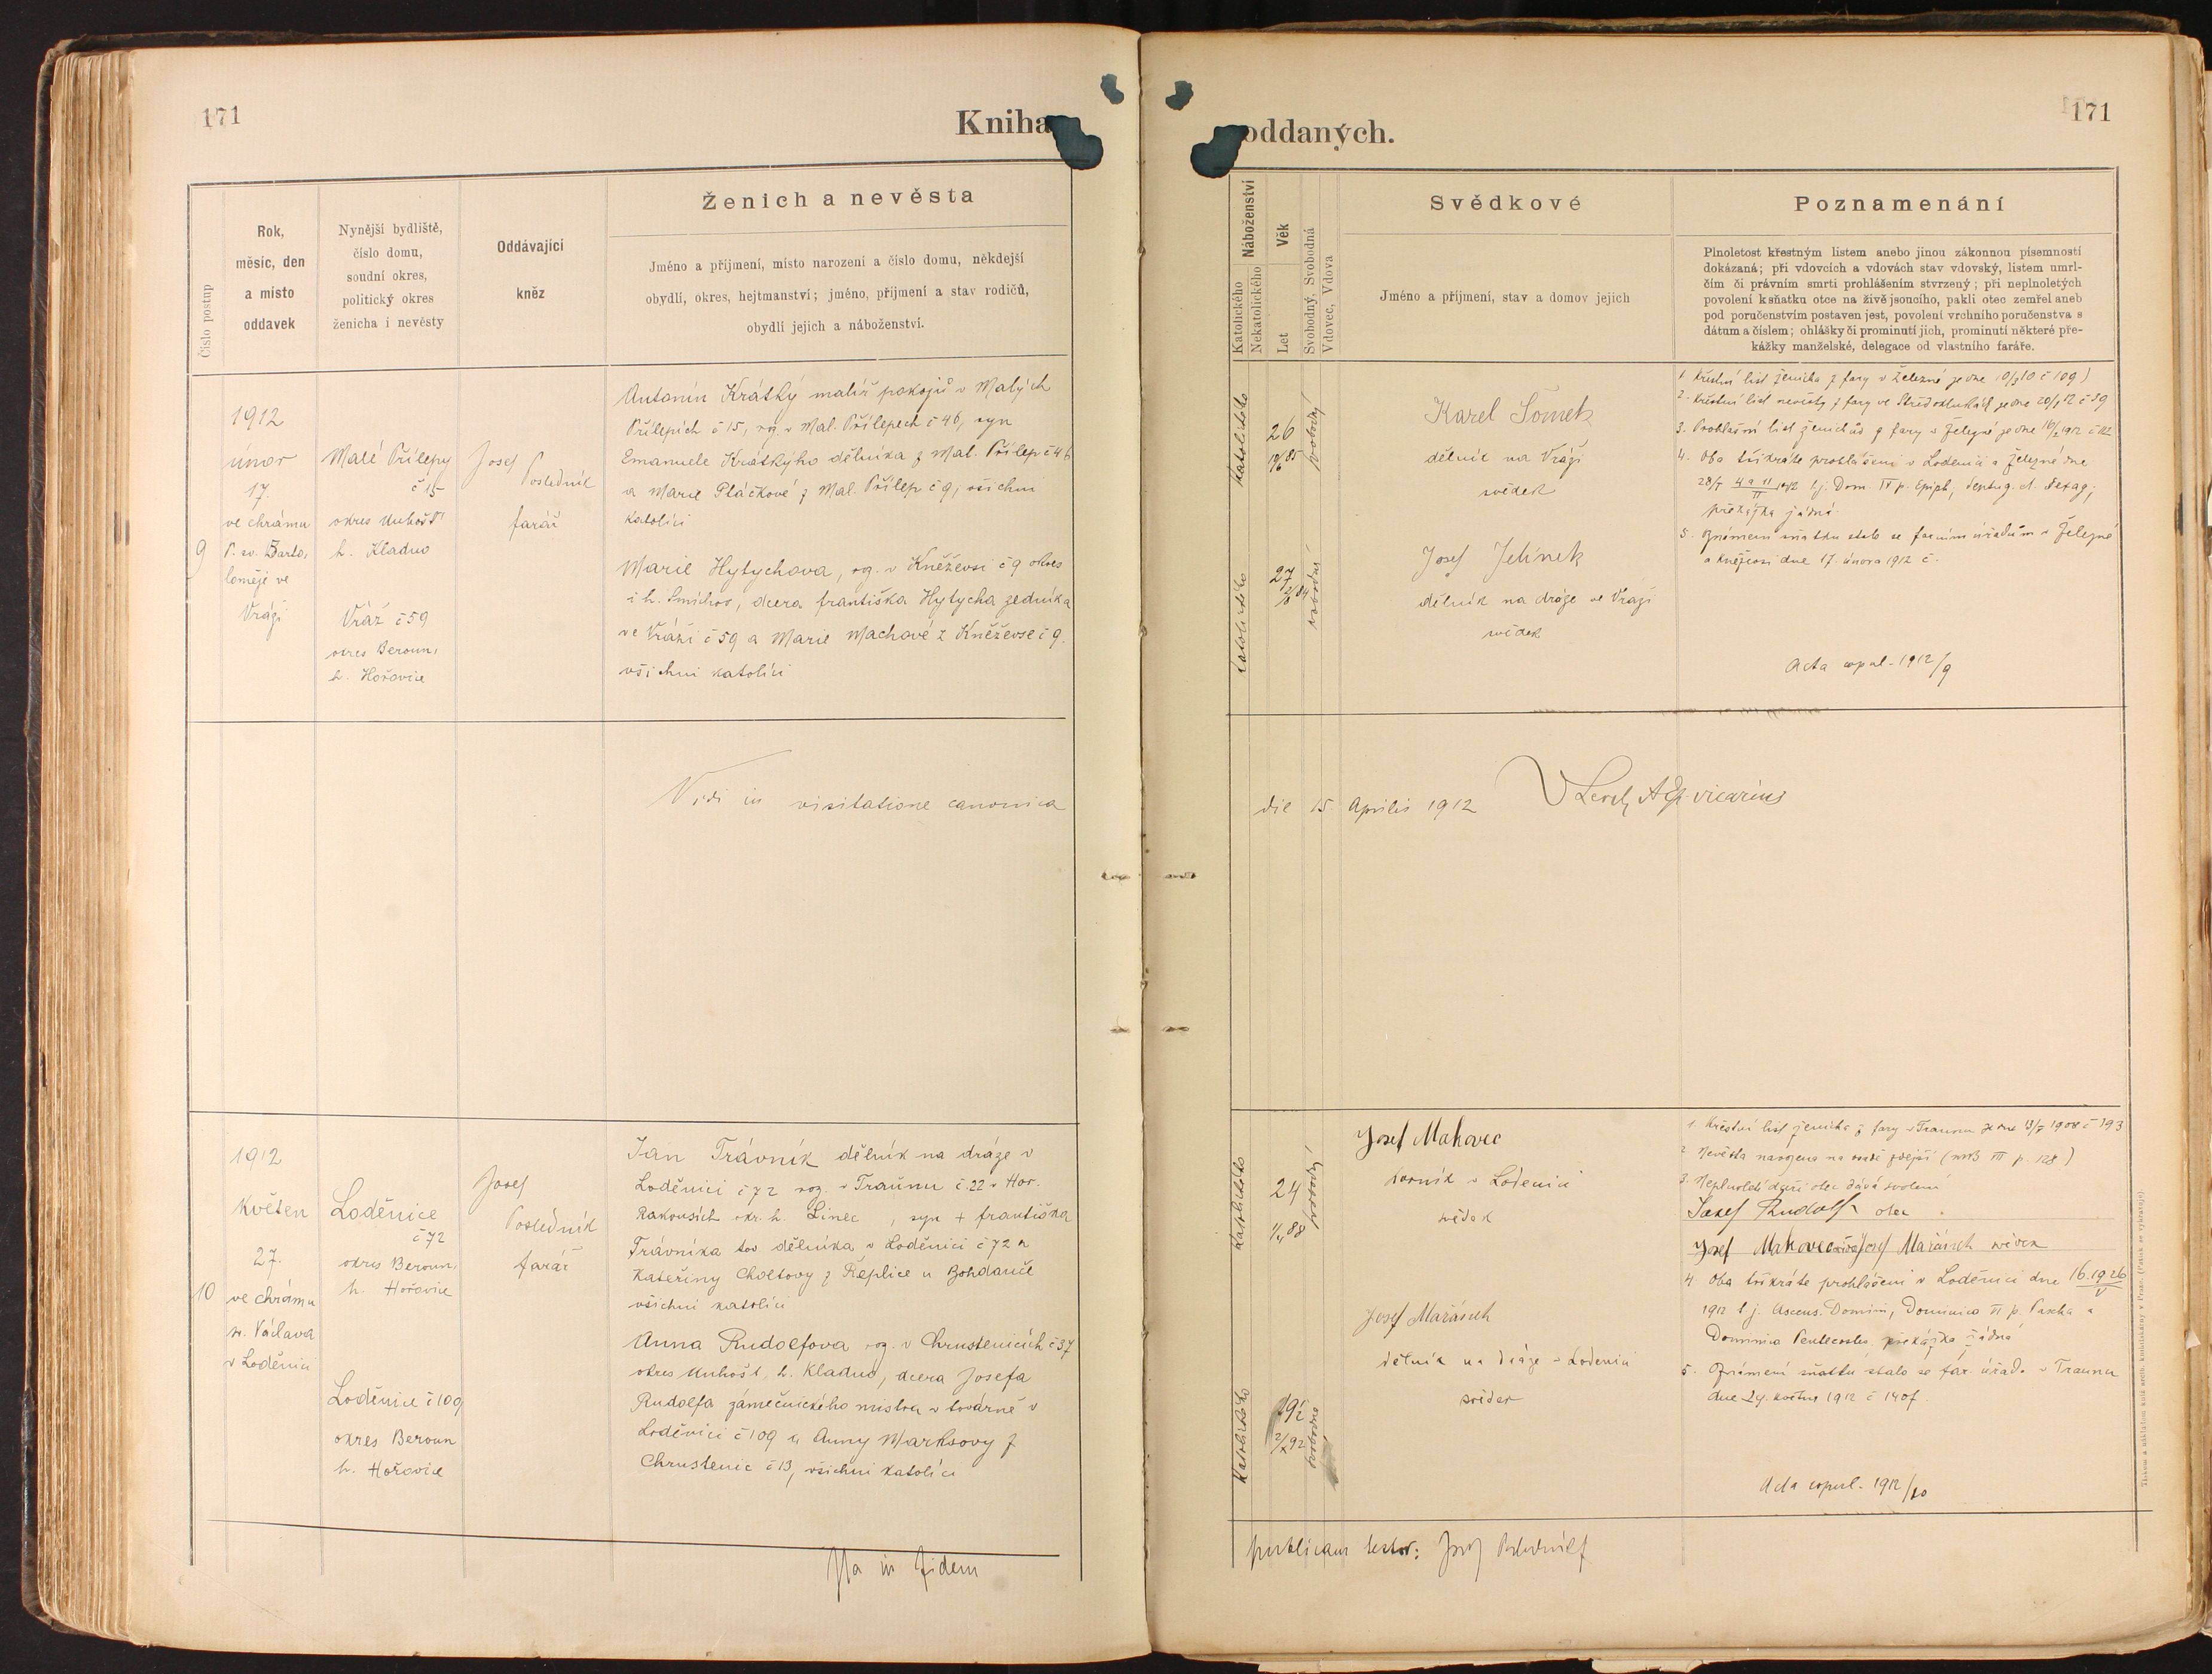 171
Kniha
oddaných.
171
Číslo postup
Rok,
měsíc, den
a místo
oddavek
Nynější bydliště,
číslo domu,
soudní okres,
politický okres
ženicha i nevěsty
Oddávající
kněz
Ženich a nevěsta
Jméno a příjmení, místo narození a číslo domu, někdejší
obydlí, okres, hejtmanství; jméno, příjmení a stav rodičů,
obydlí jejich a náboženství.
Náboženství
Katolického
Nekatolického
Věk
Let
Svobodný, Svobodná
Vdovec, Vdova
Svědkové
Jméno a příjmení, stav a domov jejich
Poznamenání
Plnoletost křestným listem anebo jinou zákonnou písemností
dokázaná; při vdovcích a vdovách stav vdovský, listem umrl-
čím či právním smrti prohlášením stvrzený; při neplnoletých
povolení k sňatku otce na živě jsoucího, pakli otec zemřel aneb
pod poručenstvím postaven jest, povolení vrchního poručenstva s
dátum a číslem; ohlášky či prominutí jich, prominutí některé pře-
kážky manželské, delegace od vlastního faráře.
9
1912
únor
17.
ve chrámu
P. sv. Barto,
loměje ve
Vráži
Malé Přílepy
č 15
okres Unhošť
h. Kladno
Vráž č 59
okres Beroun,
h. Hořovice
Josef
Posledník
farář
Antonín Krátký malíř pokojů v Malých
Přílepích č 15, roz. v Mal. Přílepech č 46, syn
Emanuele Krátkýho dělníka z Mal. Přílep č 46
a Marie Ptáčkové z Mal. Přílep č 9, všichni
katolíci
Marie Hytychova, roz. v Kněževsi č 9 okres
i h. Smíchov, dcera františka Hytycha zedníka
ve Vráži č 59 a Marie Machové z Kněževse č 9.
všichni katolíci
katolického
26
svobodný
katolického
27
svobodná
Karel Šomek
dělník na Vráži
svědek
Josef Jelínek
dělník na dráze ve Vráži
svědek
1. Křestní list ženicha z fary v Železné ze dne 10/3 10 č 109)
2. Křestní list nevěsty z fary ve Středoklukách ze dne 20/1 12 č 39
3. Prohlašní list ženichův z fary v Železné ze dne
4. Oba třikráte prohlášeni v Loděnici a Železné dne
28/I 4 a 11/II 1912 t.j. Dom. IV p. Epiph, Septuag. d. Sexag;
překážka žádná.
5. Oznámení sňatku stalo se farním úřadům v Železné
a Kněževsi dne 17. února 1912 č.
Acta copul. 1912/9
Vidi in visitatione canonica
die 15. Aprilis 1912
vicarius
10
1912
Květen
27.
ve chrámu
sv. Václava
v Loděnici
Loděnice
č 72
okres Beroun,
h. Hořovice
Loděnice č 109
okres Beroun
h. Hořovice
Josef
Posledník
farář
Jan Trávník dělník na dráze v
Loděnici č 72 roz. v Traunu č. 22 v Hor.
Rakousích okr. h. Linec, syn + františka
Trávníka tov dělníka v Loděnici č 72 a
Kateřiny Choltovy z Řeplice u Bohdanče
všichni katolíci
Anna Rudolfova roz. v Chrustenicích č 37
okres Unhošť, h. Kladno, dcera Josefa
Rudolfa zámečnického mistra v továrně v
Loděnici č 109 a Anny Marksovy z
Chrustenic č 13, všichni katolíci
katolického
24
svobodný
katolického
19½
2/X 92
svobodna
Josef Makovec
horník v Loděnici
svědek
Josef Mařánek
dělník na dráze v Loděnici
svědek
1. Křestní list ženicha z fary v Traunu ze dne 13/5 1908 č 193
2. Nevěsta narozena na osadě zdejší (MB III p. 128)
3. Neplnoleté dceři otec dává svolení
Josef Rudolf otec
Josef Makovec svědek Josef Mařánek svědek
4. Oba třikráte prohlášeni v Loděnici dne 16. 19 26/V
1912 t. j. Ascens. Domini, Dominica VI p. Pascha a
Dominica Pentecostes, překážka žádná
5. Oznámení sňatku stalo se far. úřad. v Traunu
dne 27. května 1912 č 1407.
Acta copul. 1912/10
Ita in fidem
publicam testor: Josef Posledník